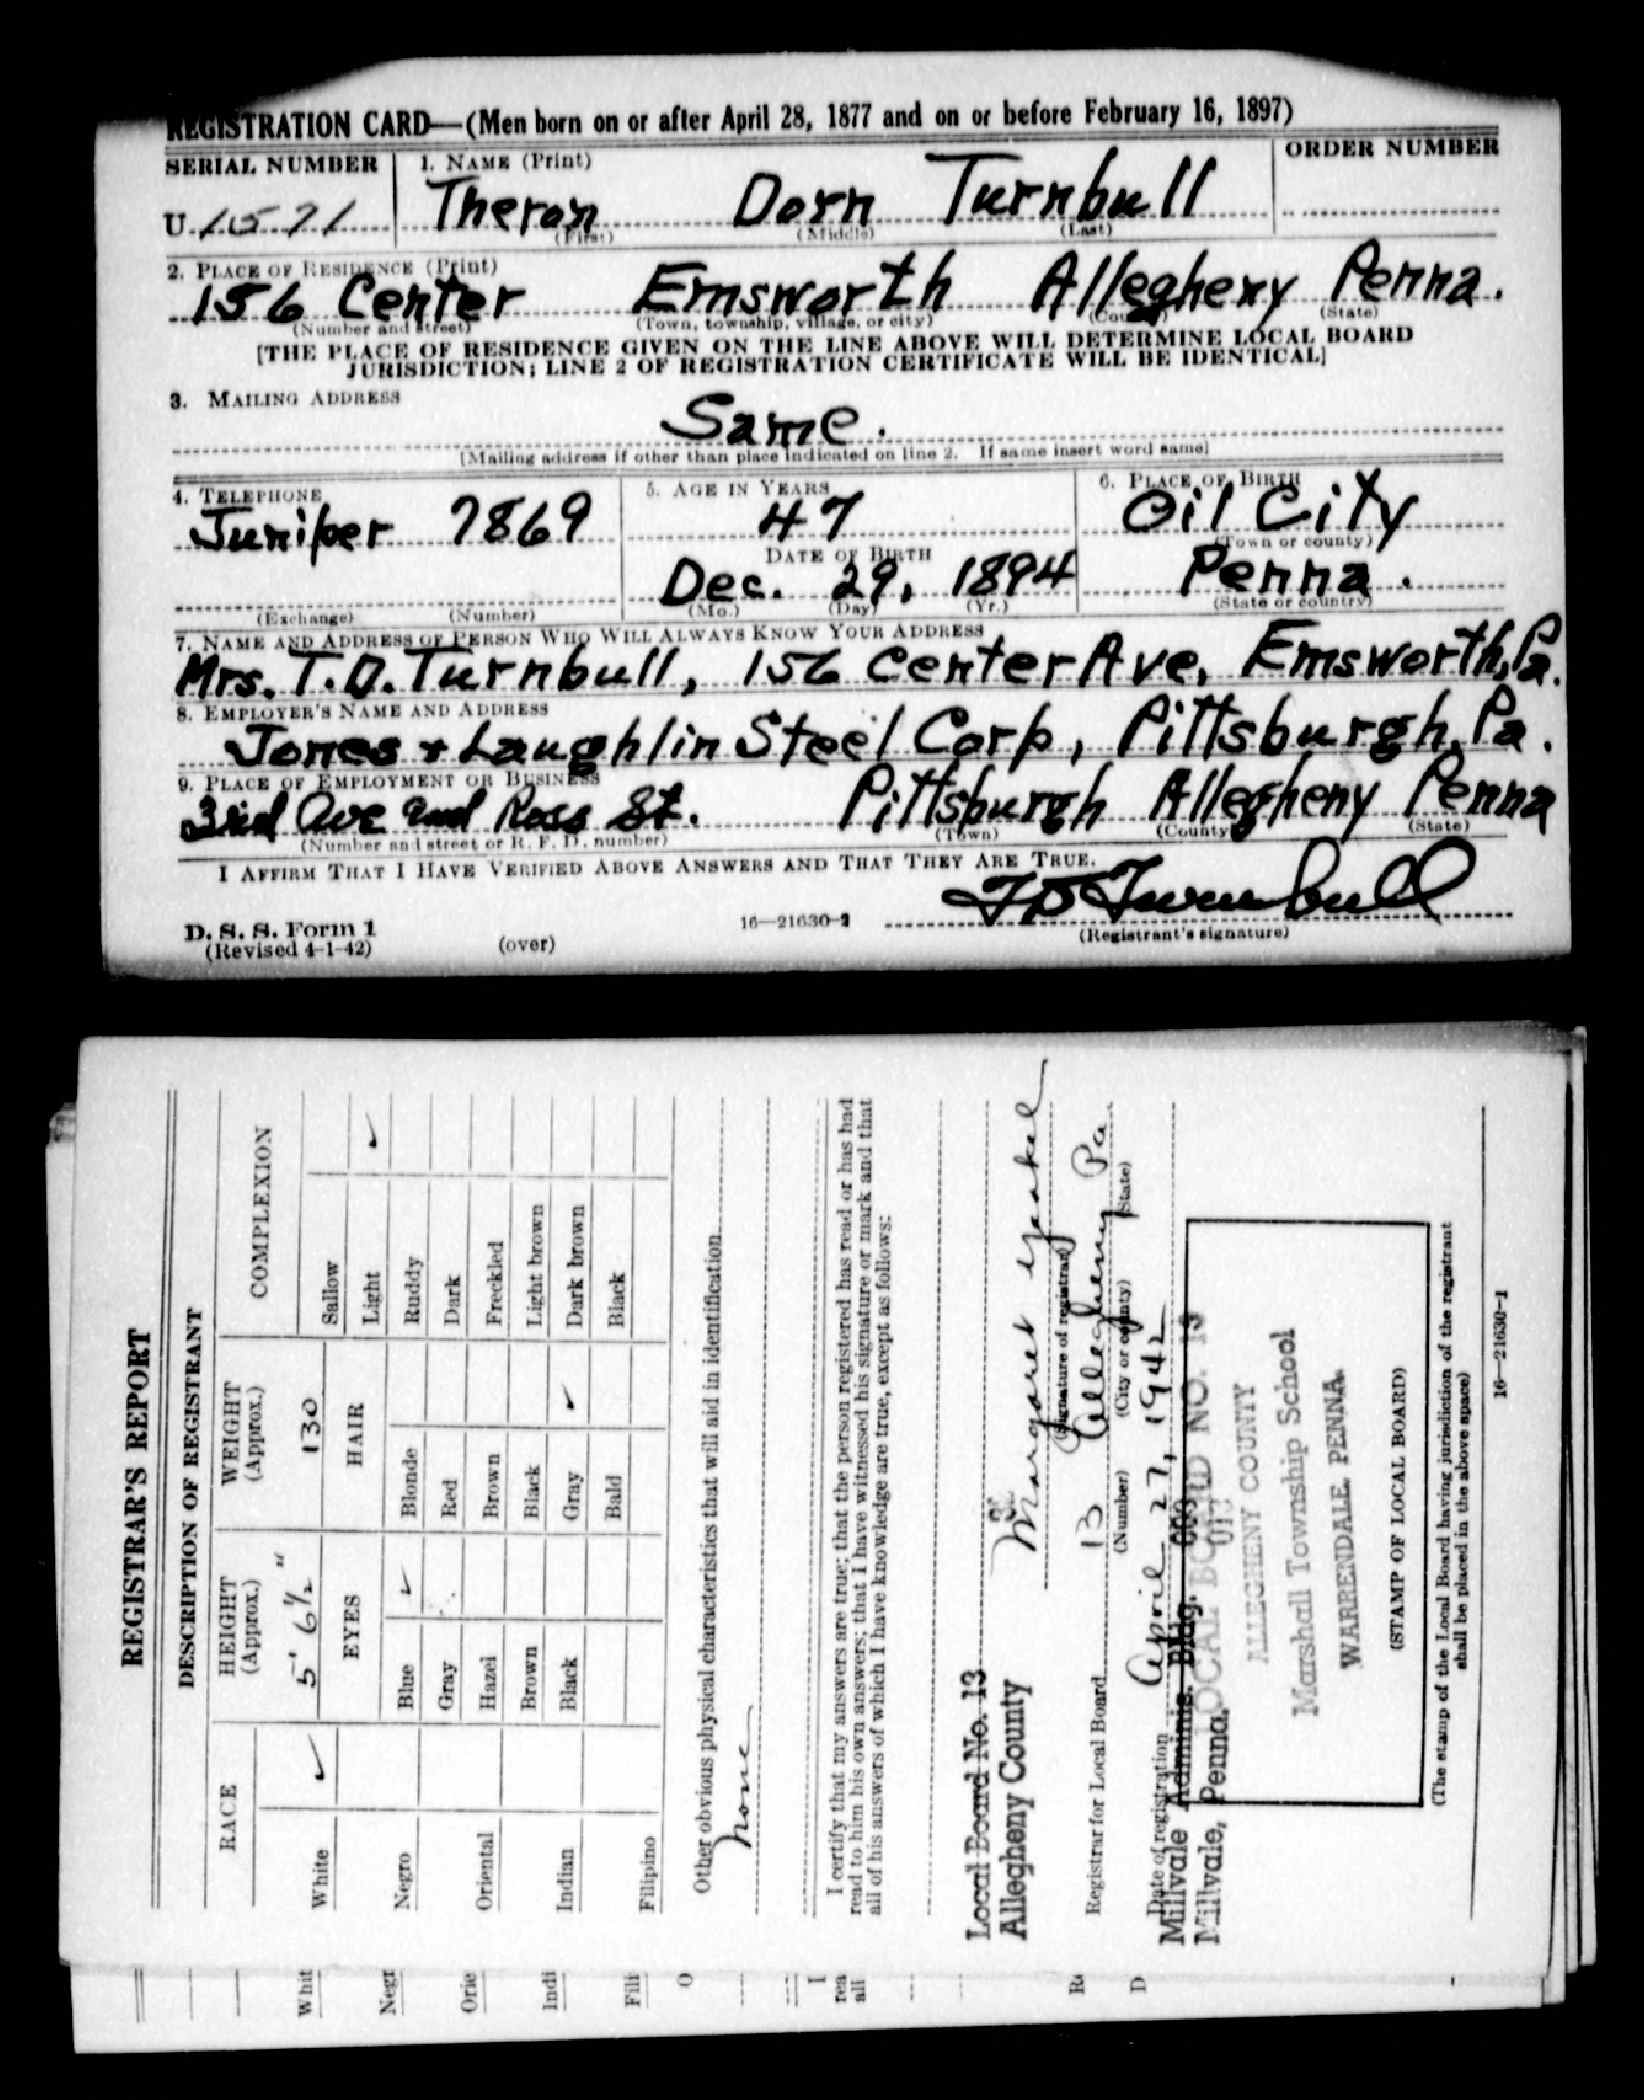 REGISTRATION CARD—(Men born on or after April 28, 1877 and on or before February 16, 1897)
SERIAL NUMBER 1. NAME (Print) ORDER NUMBER
U 1571 Theron Dorn Turnbull
(First) (Middle) (Last)
2. PLACE OF RESIDENCE (Print)
156 Center Emsworth Allegheny Penna.
(Number and street) (Town, township, village, or city) (County) (State)
[THE PLACE OF RESIDENCE GIVEN ON THE LINE ABOVE WILL DETERMINE LOCAL BOARD
JURISDICTION; LINE 2 OF REGISTRATION CERTIFICATE WILL BE IDENTICAL]
3. MAILING ADDRESS
Same.
[Mailing address if other than place indicated on line 2. If same insert word same]
4. TELEPHONE 5. AGE IN YEARS 6. PLACE OF BIRTH
Juniper 7869 47 Oil City
DATE OF BIRTH (Town or county)
Dec. 29, 1894 Penna.
(Exchange) (Number) (Mo.) (Day) (Yr.) (State or country)
7. NAME AND ADDRESS OF PERSON WHO WILL ALWAYS KNOW YOUR ADDRESS
Mrs. T.D. Turnbull, 156 Center Ave, Emsworth, Pa.
8. EMPLOYER'S NAME AND ADDRESS
Jones & Laughlin Steel Corp, Pittsburgh, Pa.
9. PLACE OF EMPLOYMENT OR BUSINESS
3rd Ave and Ross St. Pittsburgh Allegheny Penna
(Number and street or R. F. D. number) (Town) (County) (State)
I AFFIRM THAT I HAVE VERIFIED ABOVE ANSWERS AND THAT THEY ARE TRUE.
TD Turnbull
D. S. S. Form 1 16—21630-2 (Registrant's signature)
(Revised 4-1-42) (over)
REGISTRAR'S REPORT
DESCRIPTION OF REGISTRANT
RACE HEIGHT (Approx.) WEIGHT (Approx.) COMPLEXION
White ✓ 5' 6½" 130 Sallow
EYES HAIR Light ✓
Negro Blue ✓ Blonde Ruddy
Gray Red Dark
Oriental Hazel Brown Freckled
Brown Black Light brown
Indian Black Gray ✓ Dark brown
Bald Black
Filipino
Other obvious physical characteristics that will aid in identification
none
I certify that my answers are true; that the person registered has read or has had
read to him his own answers; that I have witnessed his signature or mark and that
all of his answers of which I have knowledge are true, except as follows:
Local Board No. 13
Allegheny County
Margaret
(Signature of registrar)
Registrar for Local Board 13 Allegheny Pa
(Number) (City or county) (State)
Date of registration April 27, 1942
Millvale Adminis. Bldg.
Millvale, Penna.
LOCAL BOARD NO. 13
003
013
ALLEGHENY COUNTY
Marshall Township School
WARRENDALE, PENNA.
(STAMP OF LOCAL BOARD)
(The stamp of the Local Board having jurisdiction of the registrant
shall be placed in the above space)
16—21630-1
Whit
Negr
Orie
Indi
Fili
O
I
rea
all
D